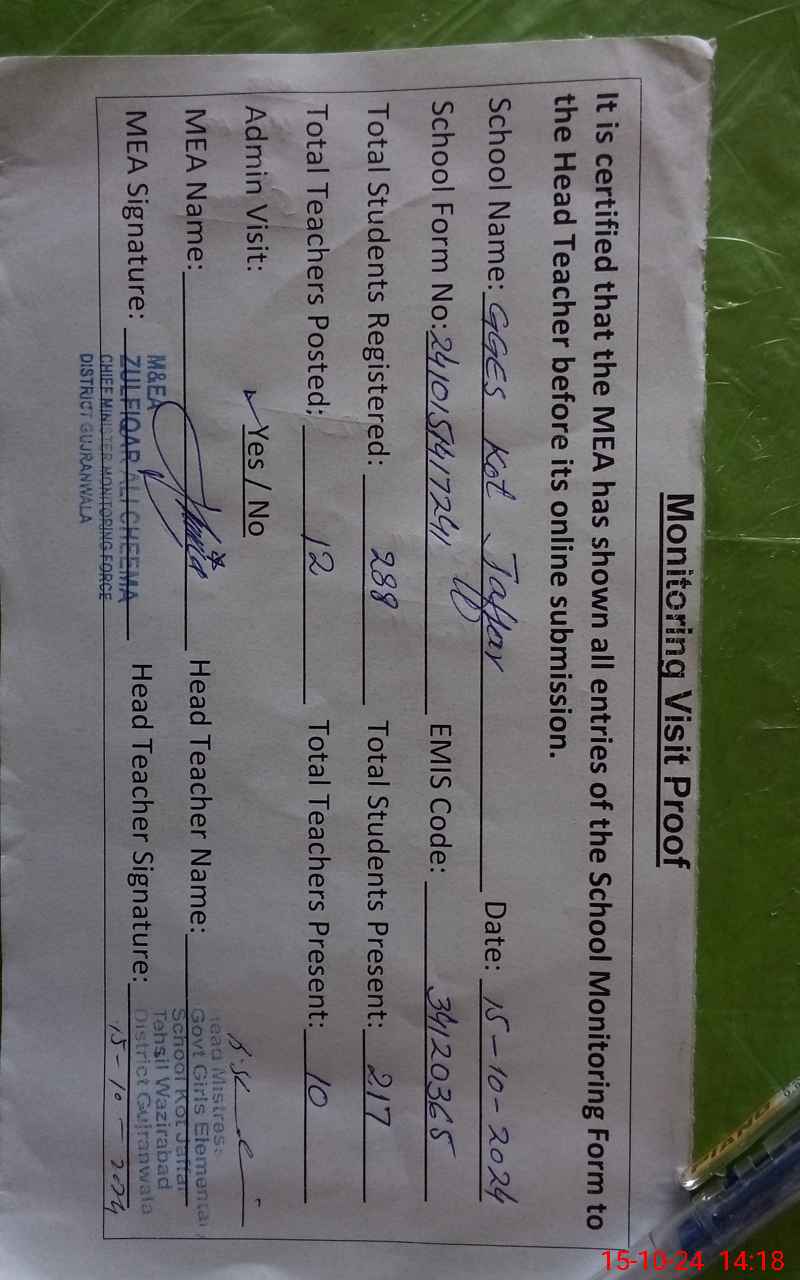 Monitoring Visit Proof
It is certified that the MEA has shown all entries of the School Monitoring Form to
the Head Teacher before its online submission.
School Name: GGES Kot Jaffar Date: 15-10-2024
School Form No: EMIS Code: 34120365
Total Students Registered: 288 Total Students Present: 217
Total Teachers Posted: 12 Total Teachers Present: 10
Admin Visit: ✓ Yes / No
MEA Name: Head Teacher Name:
MEA Signature: Head Teacher Signature:
M&EA
ZULFIQAR ALI CHEEMA
CHIEF MINISTER MONITORING FORCE
DISTRICT GUJRANWALA
Head Mistress
Govt Girls Elementary
School Kot Jaffar
Tehsil Wazirabad
District Gujranwala
15-10-2024
PIANO
15-10-24 14:18